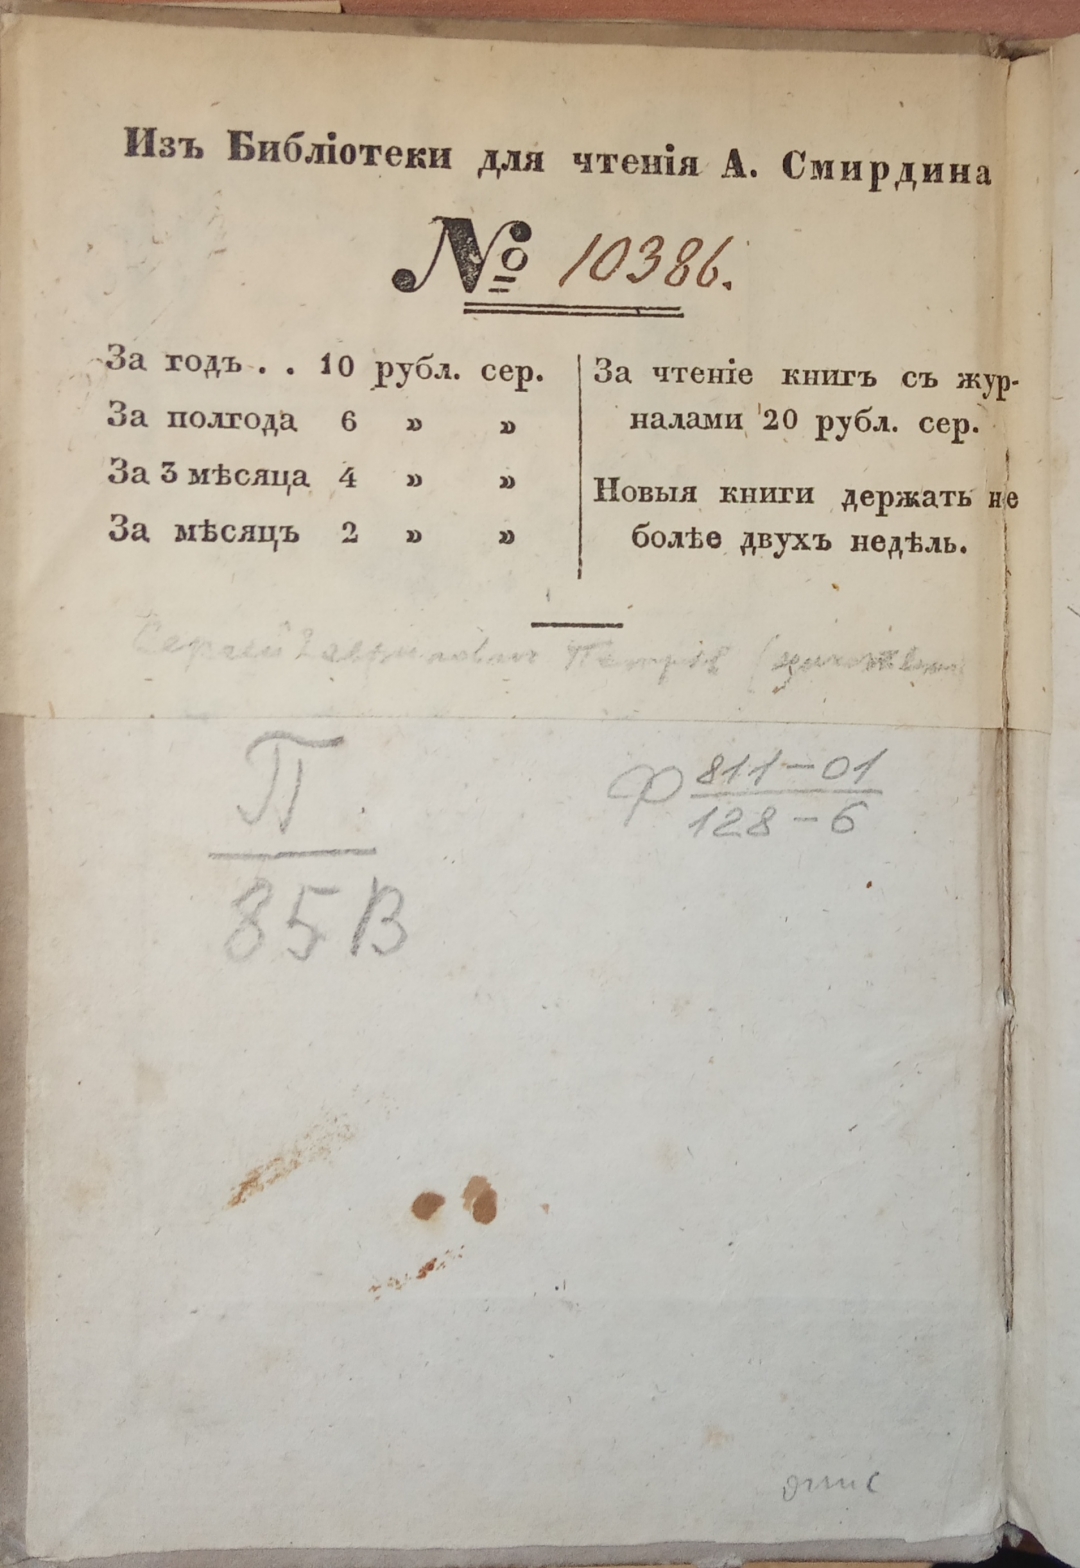 Изъ Библіотеки для чтенія А. Смирдина
№ 10386.
За годъ . . 10 рубл. сер.
За полгода 6 » »
За 3 мѣсяца 4 » »
За мѣсяцъ 2 » »
За чтеніе книгъ съ жур-
налами 20 рубл. сер.
Новыя книги держать не
болѣе двухъ недѣль.
Сергей Гаврилович Петров
П
85В
Ф 811-01
128-6